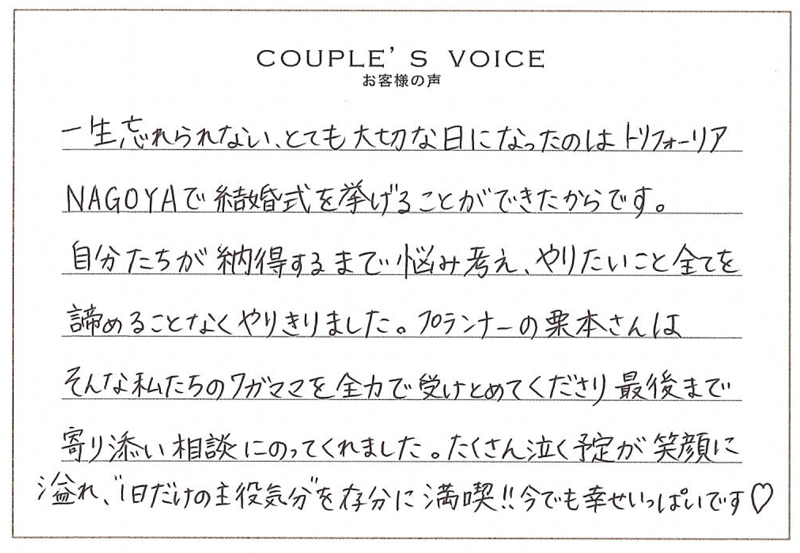 COUPLE'S VOICE
お客様の声
一生忘れられない、とても大切な日になったのはトリフォーリア
NAGOYAで結婚式を挙げることができたからです。
自分たちが納得するまで悩み考え、やりたいこと全てを
諦めることなくやりきりました。プランナーの栗本さんは
そんな私たちのワガママを全力で受けとめてくださり最後まで
寄り添い相談にのってくれました。たくさん泣く予定が笑顔に
溢れ、"1日だけの主役気分"を存分に満喫!!今でも幸せいっぱいです♡